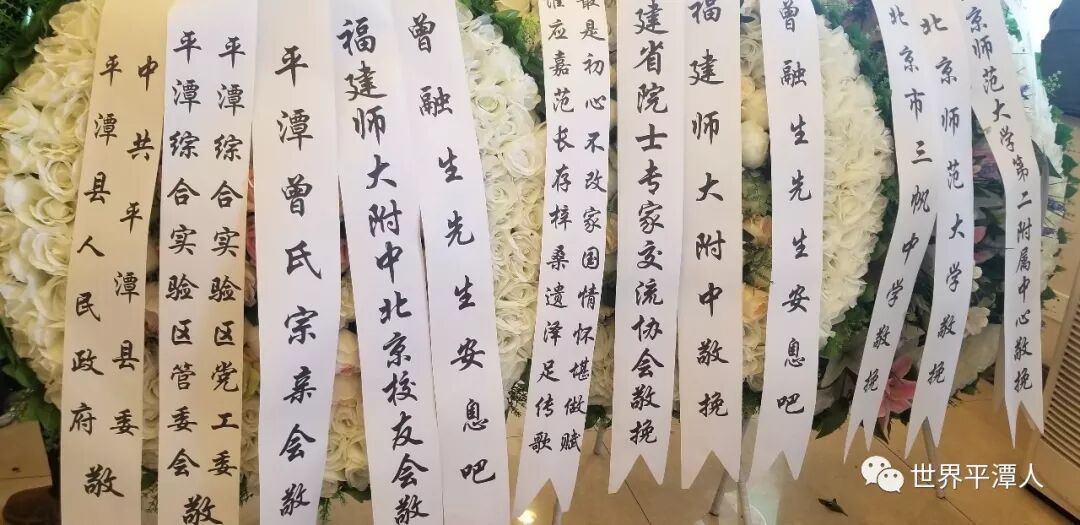 中共平潭县委
平潭县人民政府敬
平潭综合实验区党工委
平潭综合实验区管委会敬
平潭曾氏宗亲会敬
福建师大附中北京校友会敬
曾融生先生安息吧
最是初心不改家国情怀堪做赋
应嘉范长存梓桑遗泽足传歌
建省院士专家交流协会敬挽
福建师大附中敬挽
曾融生先生安息吧
北京市三帆中学敬挽
北京师范大学敬挽
京师范大学第二附属中心敬挽
世界平潭人